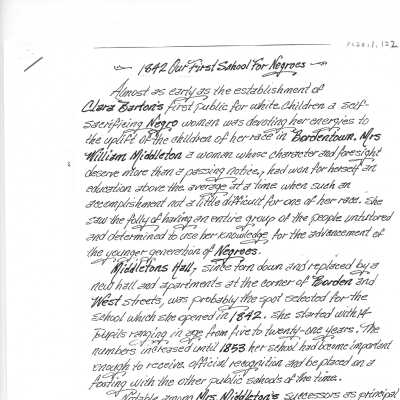 1842 Our First School For Negroes
Almost as early as the establishment of
Clara Barton's first public for white children a self-
sacrificing Negro woman was devoting her energies to
the uplift of the children of her race in Bordentown. Mrs
William Middleton a woman whose character and foresight
deserve more than a passing notice, had won for herself an
education above the average at a time when such an
accomplishment not a little difficult for one of her race. She
saw the folly of having an entire group of the people untutored
and determined to use her knowledge for the advancement of
the younger generation of Negroes.
Middletons Hall, since torn down and replaced by a
new hall and apartments at the corner of Borden and
West streets, was probably the spot selected for the
school which she opened in 1842. She started with 14
pupils ranging in age from five to twenty-one years. The
numbers increased until 1853 her school had become important
enough to receive official recognition and be placed on a
footing with the other public schools of the time.
Notable among Mrs Middleton's successors as principal